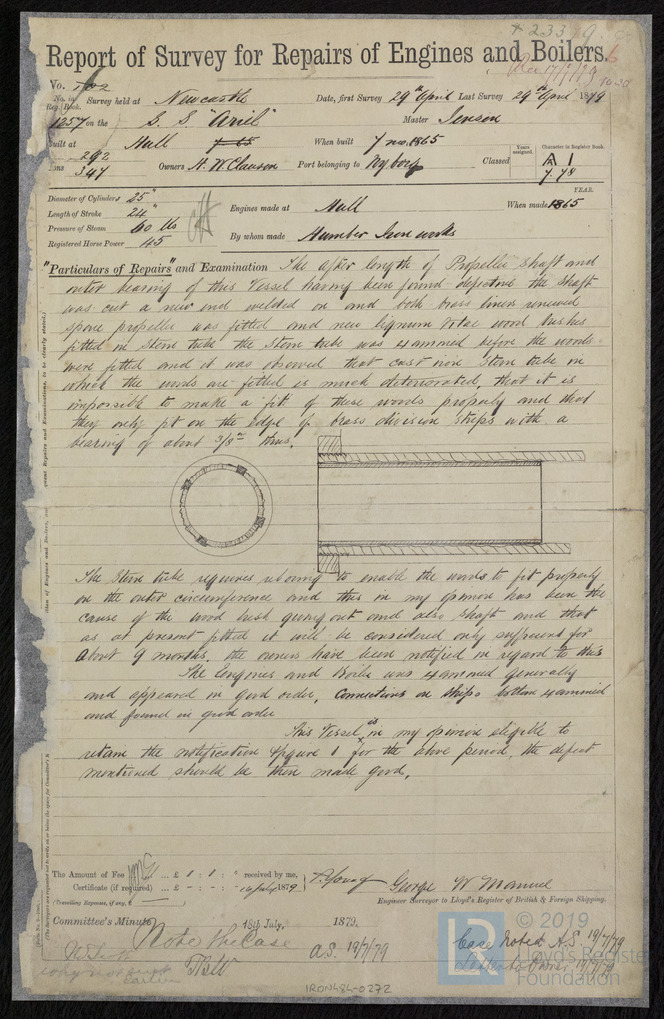 Report of Survey for Repairs of Engines and Boilers.
No. 702
No. in Reg. Book. Survey held at Newcastle Date, first Survey 29th April Last Survey 29th April 1879
1257 on the S. S. "Ariel" Master Jensen
Built at Hull When built 7 mo. 1865
Tons 292 347 Owners H. W. Clausen Port belonging to Nyborg Classed Years assigned. Character in Register Book. A 1 7.78
Diameter of Cylinders 25"
Length of Stroke 24" Engines made at Hull YEAR. When made 1865
Pressure of Steam 60 lbs
Registered Horse Power 45 By whom made Humber Iron works
"Particulars of Repairs" and Examination The after length of Propeller shaft and
outer bearing of this Vessel having been found defective the shaft
was cut a new end welded on and both brass liners renewed
spare propeller was fitted and new lignum vitae wood bushes
fitted in Stern tube the Stern tube was examined before the woods
were fitted and it was observed that cast iron Stern tube in
which the woods are fitted is much deteriorated, that it is
impossible to make a fit of these woods properly and that
they only fit on the edge of brass division strips with a
bearing of about 3/8" thus.
The Stern tube requires reboring to enable the woods to fit properly
on the outer circumference and this in my opinion has been the
cause of the wood bush giving out and also shaft and that
as at present fitted it will be considered only sufficient for
about 9 months, the owners have been notified in regard to this
The Engines and Boiler was examined generally
and appeared in good order, Connections on ships bottom examined
and found in good order
This Vessel is in my opinion eligible to
retain the notification & figure 1 for the above period, the defect
mentioned should be then made good.
The Amount of Fee ... £ 1 : 1 : received by me,
Certificate (if required) ... £ - : - : 1879
(Travelling Expenses, if any, £ )
George W Manuel
Engineer Surveyor to Lloyd's Register of British & Foreign Shipping.
Committee's Minute 18th July, 1879.
Note the Case
A.S. 19/7/79
Case Noted A.S. 19/7/79
IRON484-0272
© 2019
Lloyd's Register
Foundation